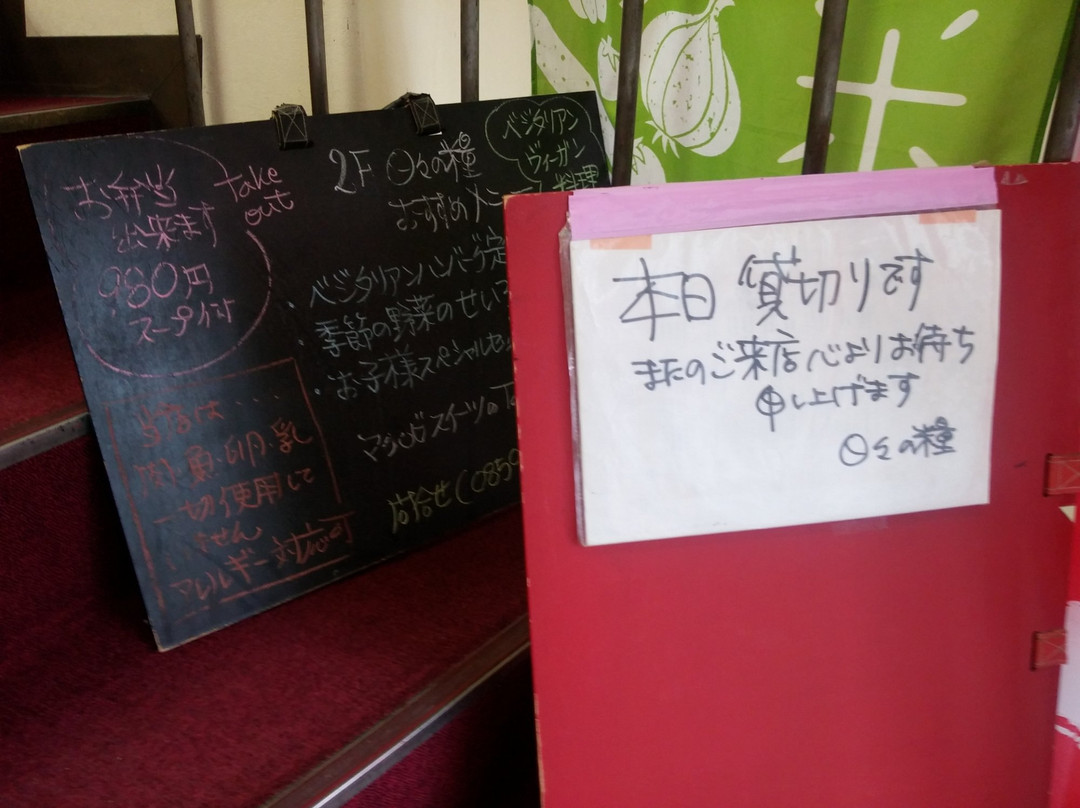 お弁当
出来ます
Take
out
980円
スープ付
当店は・・・
肉・魚・卵・乳
一切使用して
ません
アレルギー対応可
2F 日々の種
ベジタリアン
ヴィーガン
料理
おすすめメニュー
・ベジタリアンハンバーグ定
・季節の野菜のせい
・お子様スペシャルセッ
マクロビスイーツの
お問合せ(0859
本日 貸切りです
またのご来店心よりお待ち
申し上げます
日々の種